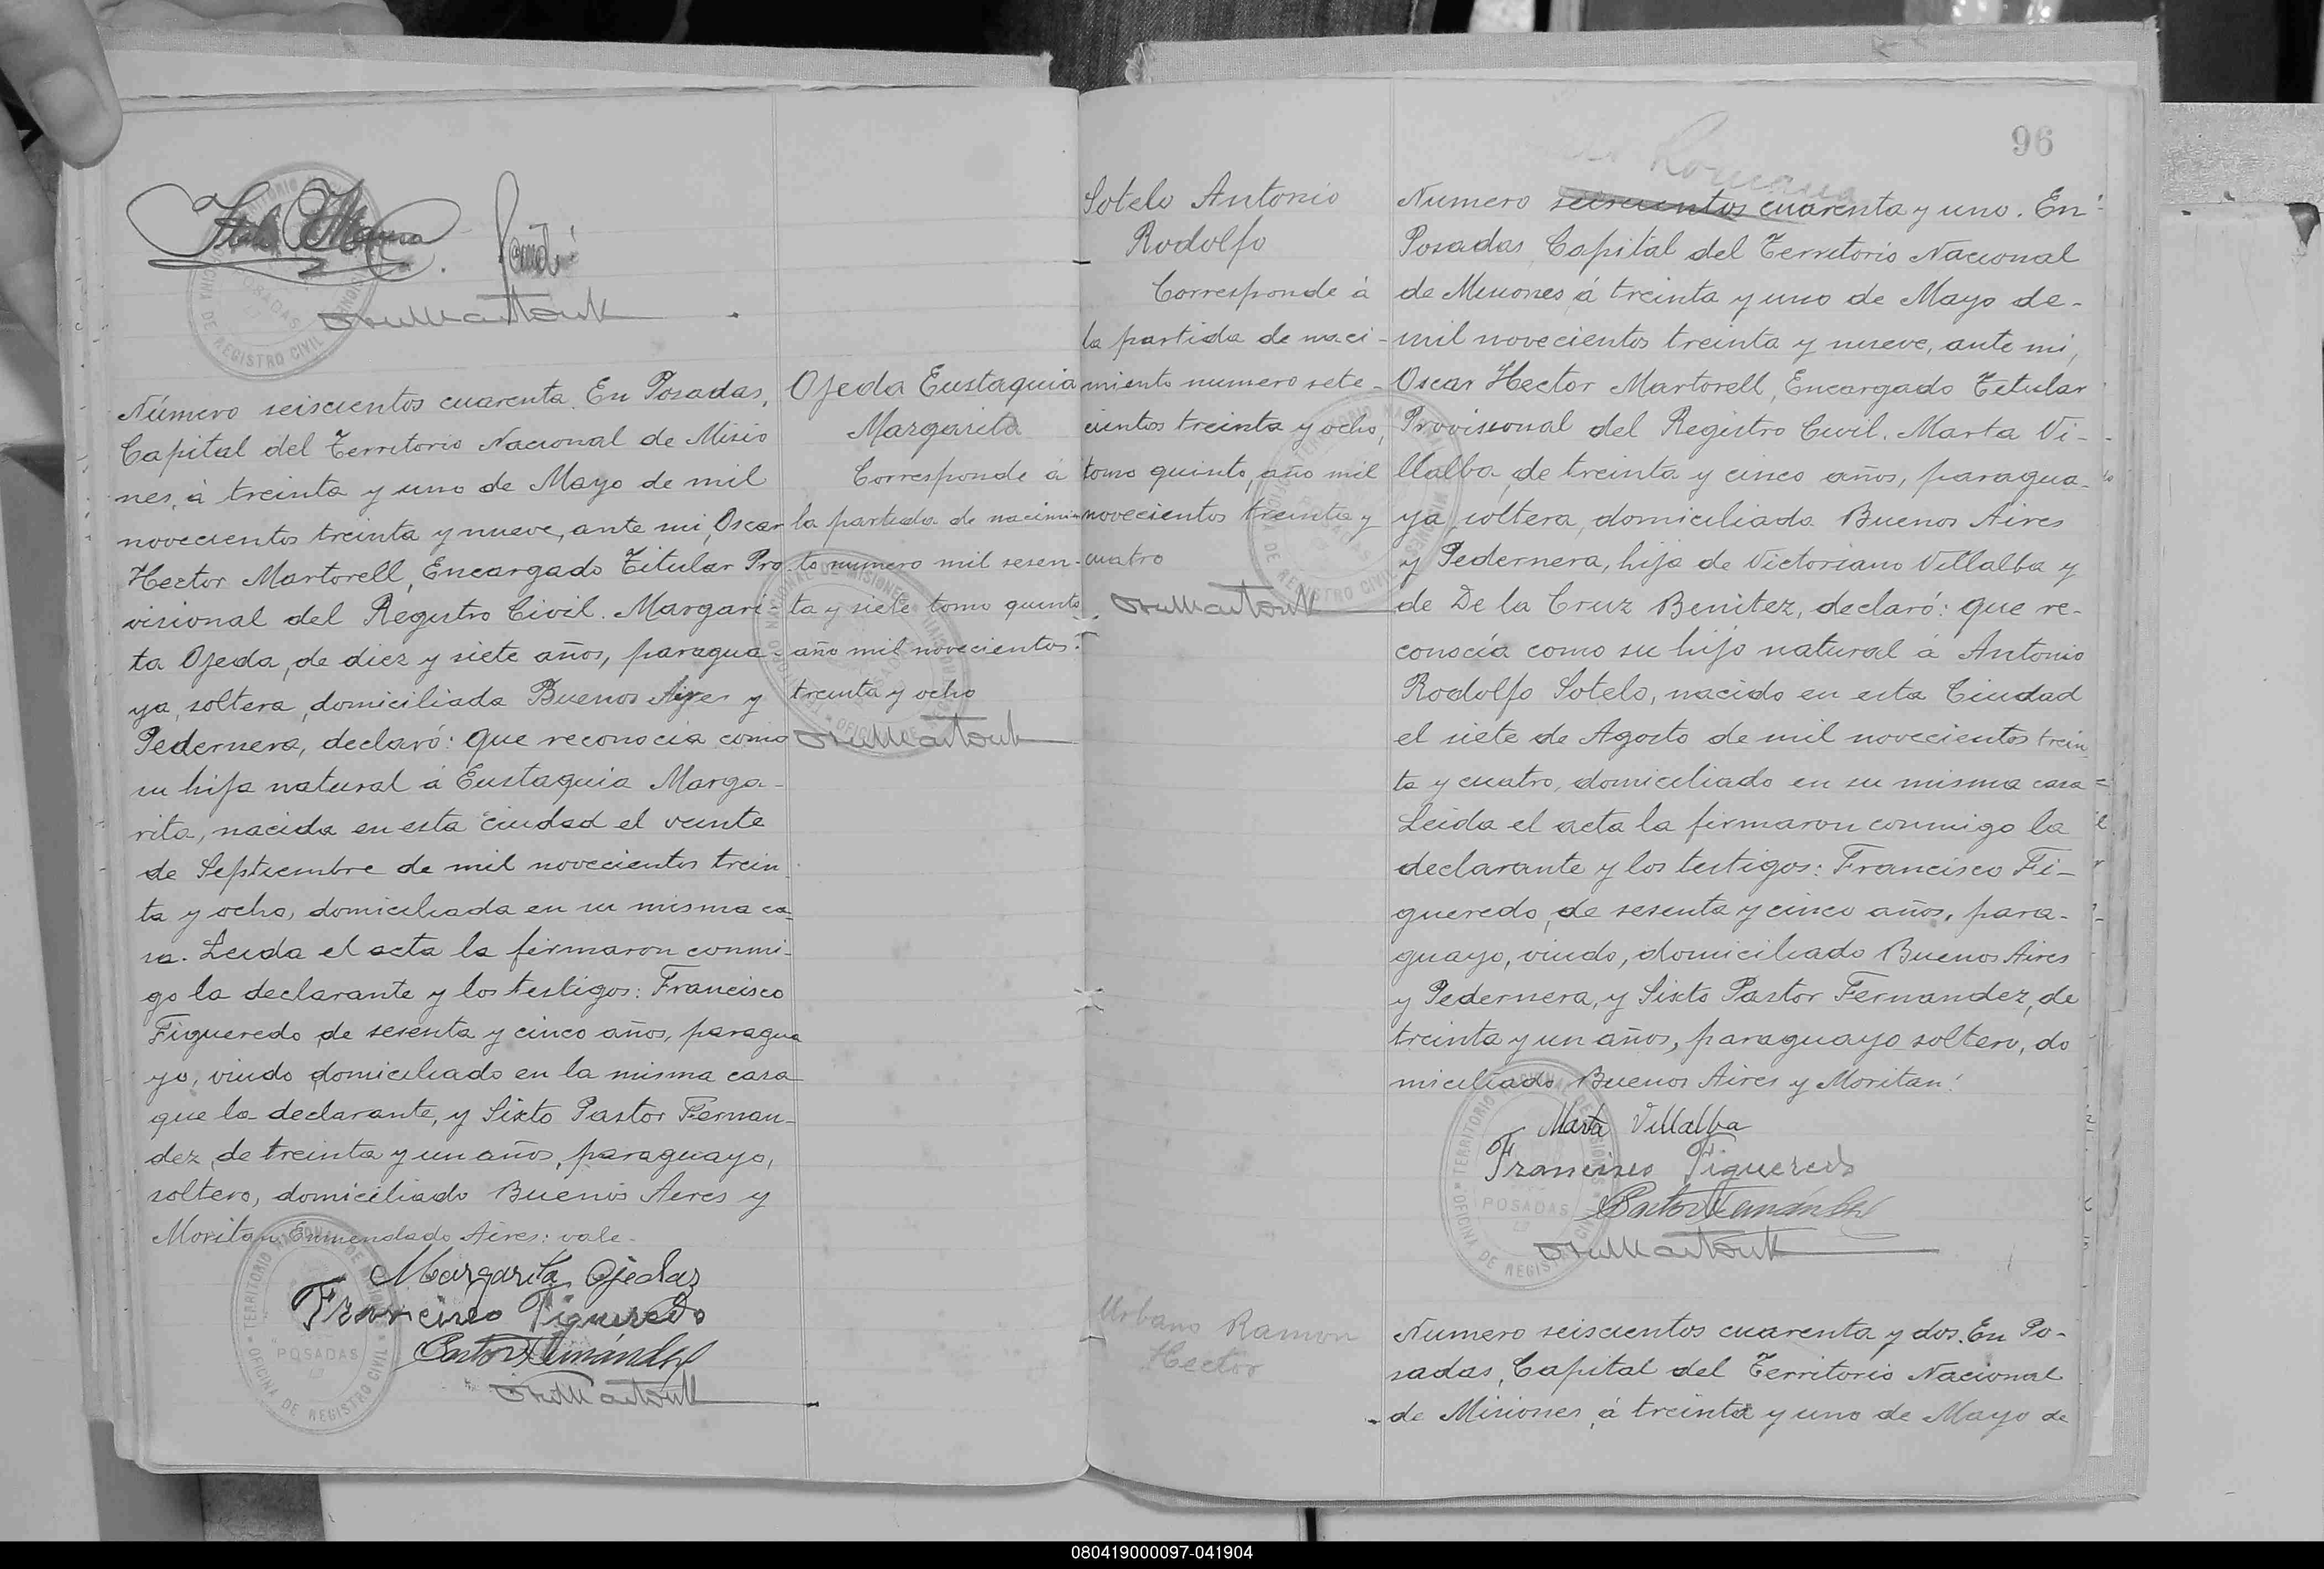 Número seiscientos cuarenta. En Posadas,
Capital del Territorio Nacional de Misio
nes, á treinta y uno de Mayo de mil
novecientos treinta y nueve, ante mi, Oscar
Hector Martorell, Encargado Titular Pro-
visional del Registro Civil. Margari-
ta Ojeda, de diez y siete años, paragua-
ya, soltera, domiciliada Buenos Aires y
Pedernera, declaró: Que reconocia como
su hija natural á Eustaquia Marga-
rita, nacida en esta ciudad el veinte
de Septiembre de mil novecientos trein-
ta y ocho, domiciliada en su misma ca-
sa. Leida el acta la firmaron conmi-
go la declarante y los testigos: Francisco
Figueredo, de sesenta y cinco años, paragua
yo, viudo, domiciliado en la misma casa
que la declarante, y Sixto Pastor Fernan-
dez, de treinta y un años, paraguayo,
soltero, domiciliado Buenos Aires y
Moritan. Enmendado Aires: vale.
Margarita Ojeda
Francisco Figueredo
Pastor Fernández
TERRITORIO NACIONAL DE MISIONES
POSADAS
OFICINA DE REGISTRO CIVIL
Ojeda Eustaquia
Margarita
Corresponde á
la partida de nacimien
to numero mil sesen-
ta y siete tomo quinto
año mil novecientos
treinta y ocho
Sotelo Antonio
Rodolfo
Corresponde á
la partida de naci-
miento numero sete-
cientos treinta y ocho,
tomo quinto, año mil
novecientos treinta y
cuatro
96
Romano
Numero seiscientos cuarenta y uno. En
Posadas, Capital del Territorio Nacional
de Misiones, á treinta y uno de Mayo de-
mil novecientos treinta y nueve, ante mi,
Oscar Hector Martorell, Encargado Titular
Provisional del Registro Civil. Marta Vi-
llalba, de treinta y cinco años, paragua-
ya, soltera, domiciliada Buenos Aires
y Pedernera, hija de Victoriano Villalba y
de De la Cruz Benitez, declaró: Que re-
conocía como su hijo natural á Antonio
Rodolfo Sotelo, nacido en esta Ciudad
el siete de Agosto de mil novecientos trein
ta y cuatro, domiciliado en su misma casa
Leida el acta la firmaron conmigo la
declarante y los testigos: Francisco Fi-
gueredo, de sesenta y cinco años, para-
guayo, viudo, domiciliado Buenos Aires
y Pedernera, y Sixto Pastor Fernandez, de
treinta y un años, paraguayo soltero, do
miciliado Buenos Aires y Moritan.
Marta Villalba
Francisco Figueredo
Pastor Fernández
TERRITORIO NACIONAL DE MISIONES
POSADAS
OFICINA DE REGISTRO CIVIL
Urbano Ramon
Hector
Numero seiscientos cuarenta y dos. En Po-
sadas, Capital del Territorio Nacional
de Misiones, á treinta y uno de Mayo de
080419000097-041904